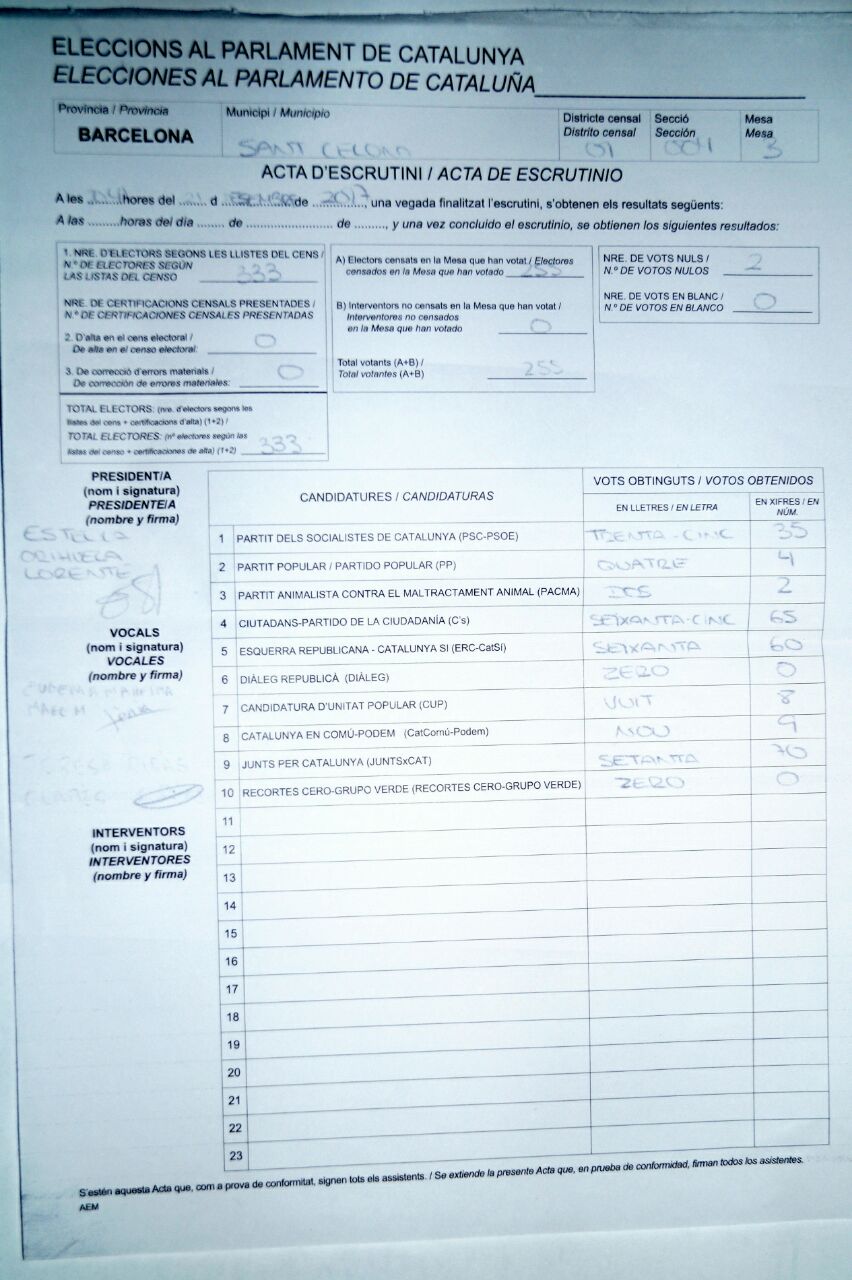 ELECCIONS AL PARLAMENT DE CATALUNYA
ELECCIONES AL PARLAMENTO DE CATALUÑA
Província / Provincia
BARCELONA
Municipi / Municipio
SANT CELONI
Districte censal
Distrito censal
01
Secció
Sección
004
Mesa
Mesa
3
ACTA D'ESCRUTINI / ACTA DE ESCRUTINIO
A les ........hores del ...... d ................de 2017, una vegada finalitzat l'escrutini, s'obtenen els resultats següents:
A las .........horas del día ...... de ......................... de ........., y una vez concluido el escrutinio, se obtienen los siguientes resultados:
1. NRE. D'ELECTORS SEGONS LES LLISTES DEL CENS /
N.º DE ELECTORES SEGÚN
LAS LISTAS DEL CENSO 333
NRE. DE CERTIFICACIONS CENSALS PRESENTADES /
N.º DE CERTIFICACIONES CENSALES PRESENTADAS
2. D'alta en el cens electoral /
De alta en el censo electoral: 0
3. De correcció d'errors materials /
De corrección de errores materiales: 0
TOTAL ELECTORS: (nre. d'electors segons les
llistes del cens + certificacions d'alta) (1+2) /
TOTAL ELECTORES: (nº electores según las
listas del censo + certificaciones de alta) (1+2) 333
A) Electors censats en la Mesa que han votat / Electores
censados en la Mesa que han votado 255
B) Interventors no censats en la Mesa que han votat /
Interventores no censados
en la Mesa que han votado 0
Total votants (A+B) /
Total votantes (A+B) 255
NRE. DE VOTS NULS /
N.º DE VOTOS NULOS 2
NRE. DE VOTS EN BLANC /
N.º DE VOTOS EN BLANCO 0
PRESIDENT/A
(nom i signatura)
PRESIDENTE/A
(nombre y firma)
ESTELA
ORIHUELA
LORENTE
VOCALS
(nom i signatura)
VOCALES
(nombre y firma)
INTERVENTORS
(nom i signatura)
INTERVENTORES
(nombre y firma)
CANDIDATURES / CANDIDATURAS
VOTS OBTINGUTS / VOTOS OBTENIDOS
EN LLETRES / EN LETRA
EN XIFRES / EN NÚM.
1 PARTIT DELS SOCIALISTES DE CATALUNYA (PSC-PSOE) TRENTA-CINC 35
2 PARTIT POPULAR / PARTIDO POPULAR (PP) QUATRE 4
3 PARTIT ANIMALISTA CONTRA EL MALTRACTAMENT ANIMAL (PACMA) DOS 2
4 CIUTADANS-PARTIDO DE LA CIUDADANÍA (C's) SEIXANTA-CINC 65
5 ESQUERRA REPUBLICANA - CATALUNYA SI (ERC-CatSí) SEIXANTA 60
6 DIÀLEG REPUBLICÀ (DIÀLEG) ZERO 0
7 CANDIDATURA D'UNITAT POPULAR (CUP) VUIT 8
8 CATALUNYA EN COMÚ-PODEM (CatComú-Podem) NOU 9
9 JUNTS PER CATALUNYA (JUNTSxCAT) SETANTA 70
10 RECORTES CERO-GRUPO VERDE (RECORTES CERO-GRUPO VERDE) ZERO 0
11
12
13
14
15
16
17
18
19
20
21
22
23
S'estén aquesta Acta que, com a prova de conformitat, signen tots els assistents. / Se extiende la presente Acta que, en prueba de conformidad, firman todos los asistentes.
AEM